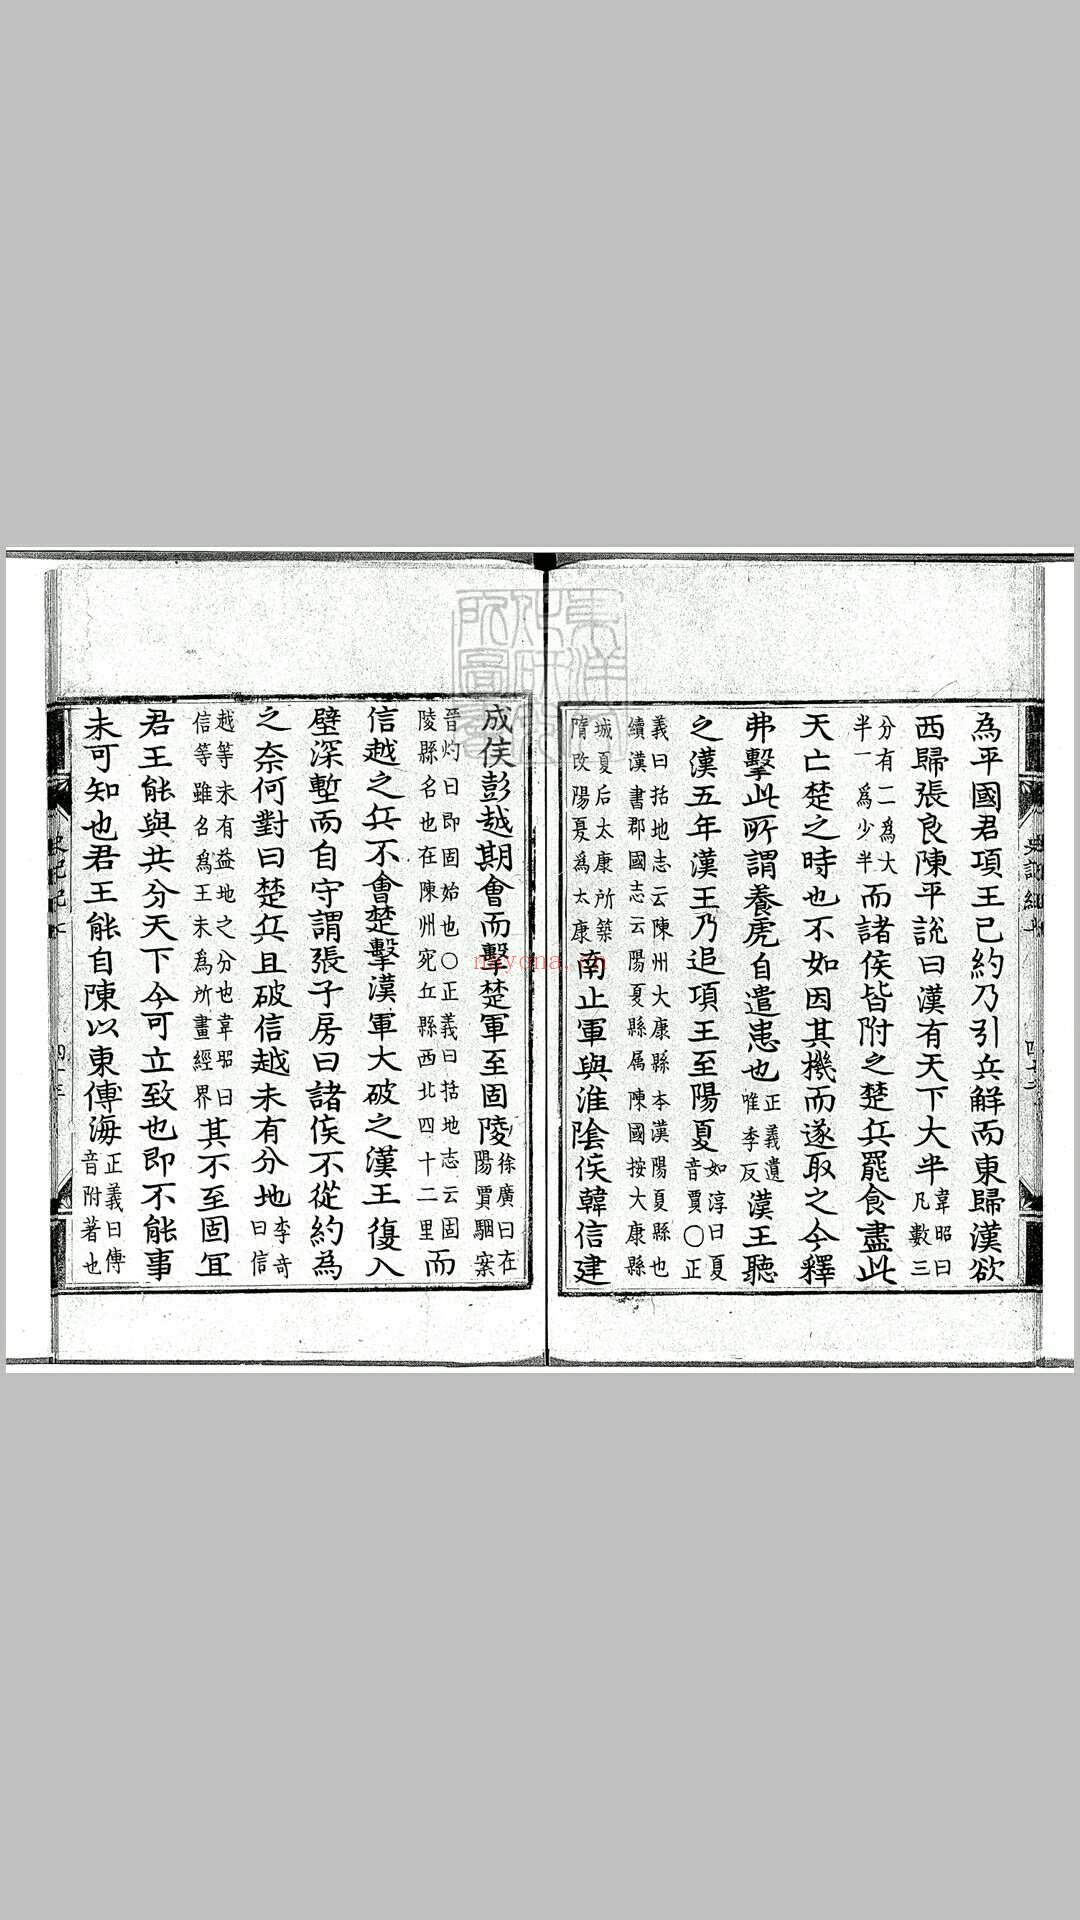 為平國君項王已約乃引兵解而東歸漢欲
西歸張良陳平說曰漢有天下大半韋昭曰凡數三
分有二為大半一為少半而諸侯皆附之楚兵罷食盡此
天亡楚之時也不如因其機而遂取之今釋
弗擊此所謂養虎自遺患也正義遺唯季反漢王聽
之漢五年漢王乃追項王至陽夏如淳曰夏音賈○正
義曰括地志云陳州太康縣本漢陽夏縣也續漢書郡國志云陽夏縣属陳國按大康縣
城夏后太康所築隋改陽夏為太康南止軍與淮陰侯韓信建
成侯彭越期會而擊楚軍至固陵徐廣曰在陽賈駰案
晉灼曰即固始也○正義曰括地志云固陵縣名也在陳州宛丘縣西北四十二里而
信越之兵不會楚擊漢軍大破之漢王復入
壁深塹而自守謂張子房曰諸侯不從約為
之奈何對曰楚兵且破信越未有分地李奇曰信
越等未有益地之分也韋昭曰信等雖名為王未為所畫經界其不至固冝
君王能與共分天下今可立致也即不能事
未可知也君王能自陳以東傳海正義曰傳音附著也